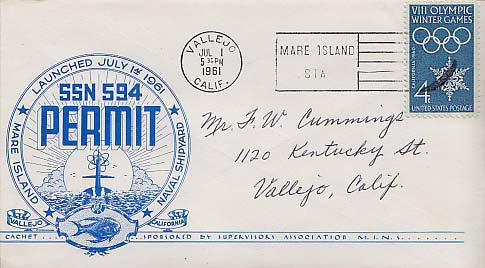 LAUNCHED JULY 1st 1961
SSN 594
PERMIT
MARE ISLAND
NAVAL SHIPYARD
VALLEJO
CALIFORNIA
CACHET SPONSORED BY SUPERVISORS ASSOCIATION M.I.N.S.
VALLEJO
JUL 1
5 30 PM
1961
CALIF.
MARE ISLAND
STA
VIII OLYMPIC
WINTER GAMES
CALIFORNIA 1960
4¢
UNITED STATES POSTAGE
Mr. F. W. Cummings
1120 Kentucky St.
Vallejo, Calif.